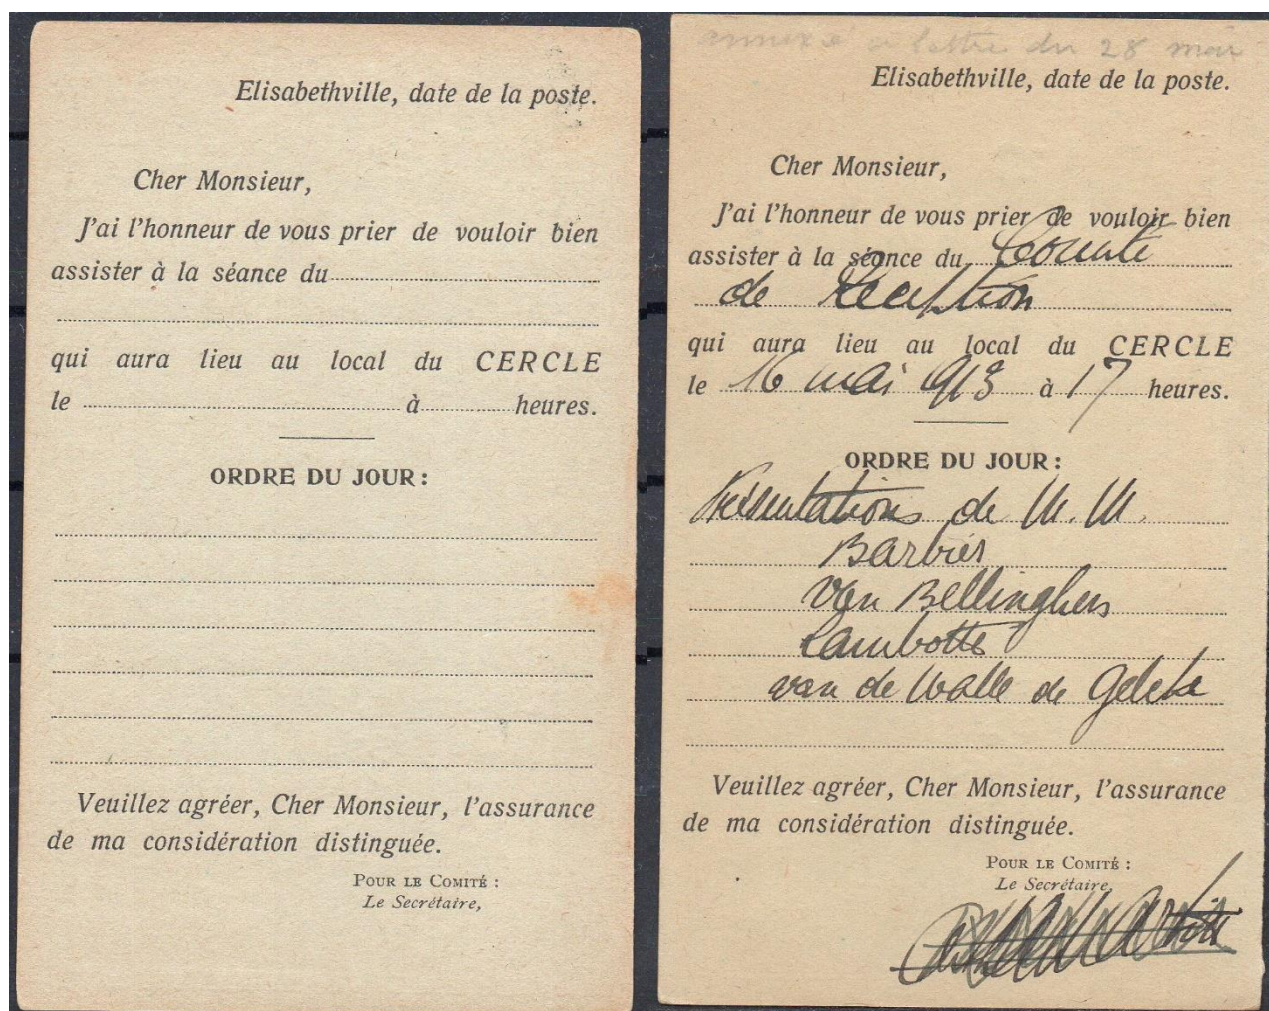 Elisabethville, date de la poste.
Cher Monsieur,
J'ai l'honneur de vous prier de vouloir bien
assister à la séance du
qui aura lieu au local du CERCLE
le à heures.
ORDRE DU JOUR :
Veuillez agréer, Cher Monsieur, l'assurance
de ma considération distinguée.
POUR LE COMITÉ :
Le Secrétaire,
annexe a lettre du 28 mai
Elisabethville, date de la poste.
Cher Monsieur,
J'ai l'honneur de vous prier de vouloir bien
assister à la séance du Comité
de Réception
qui aura lieu au local du CERCLE
le 16 mai 1913 à 17 heures.
ORDRE DU JOUR :
Présentations de M.M.
Barbier
Van Bellinghen
Lambotte
van de Walle de
Veuillez agréer, Cher Monsieur, l'assurance
de ma considération distinguée.
POUR LE COMITÉ :
Le Secrétaire,